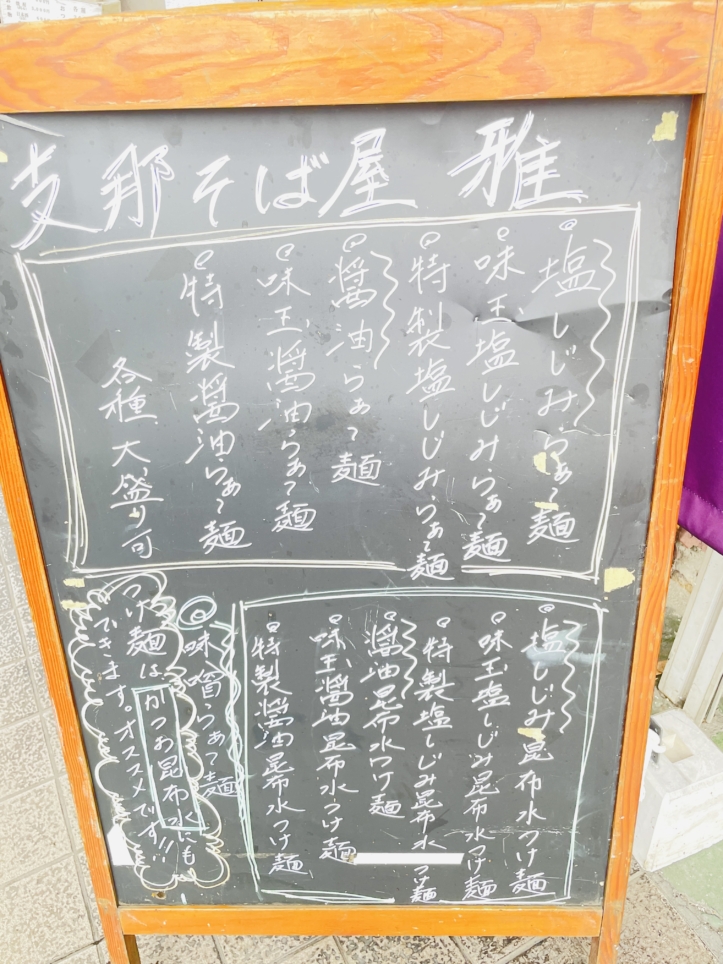 支那そば屋 雅
塩しじみらぁ麺
味玉塩しじみらぁ麺
特製塩しじみらぁ麺
醤油らぁ麺
味玉醤油らぁ麺
特製醤油らぁ麺
各種大盛り可
塩しじみ昆布水つけ麺
味玉塩しじみ昆布水つけ麺
特製塩しじみ昆布水つけ麺
醤油昆布水つけ麺
味玉醤油昆布水つけ麺
特製醤油昆布水つけ麺
味噌らぁて麺
つけ麺はかつお昆布水でも
できます。オススメです!!